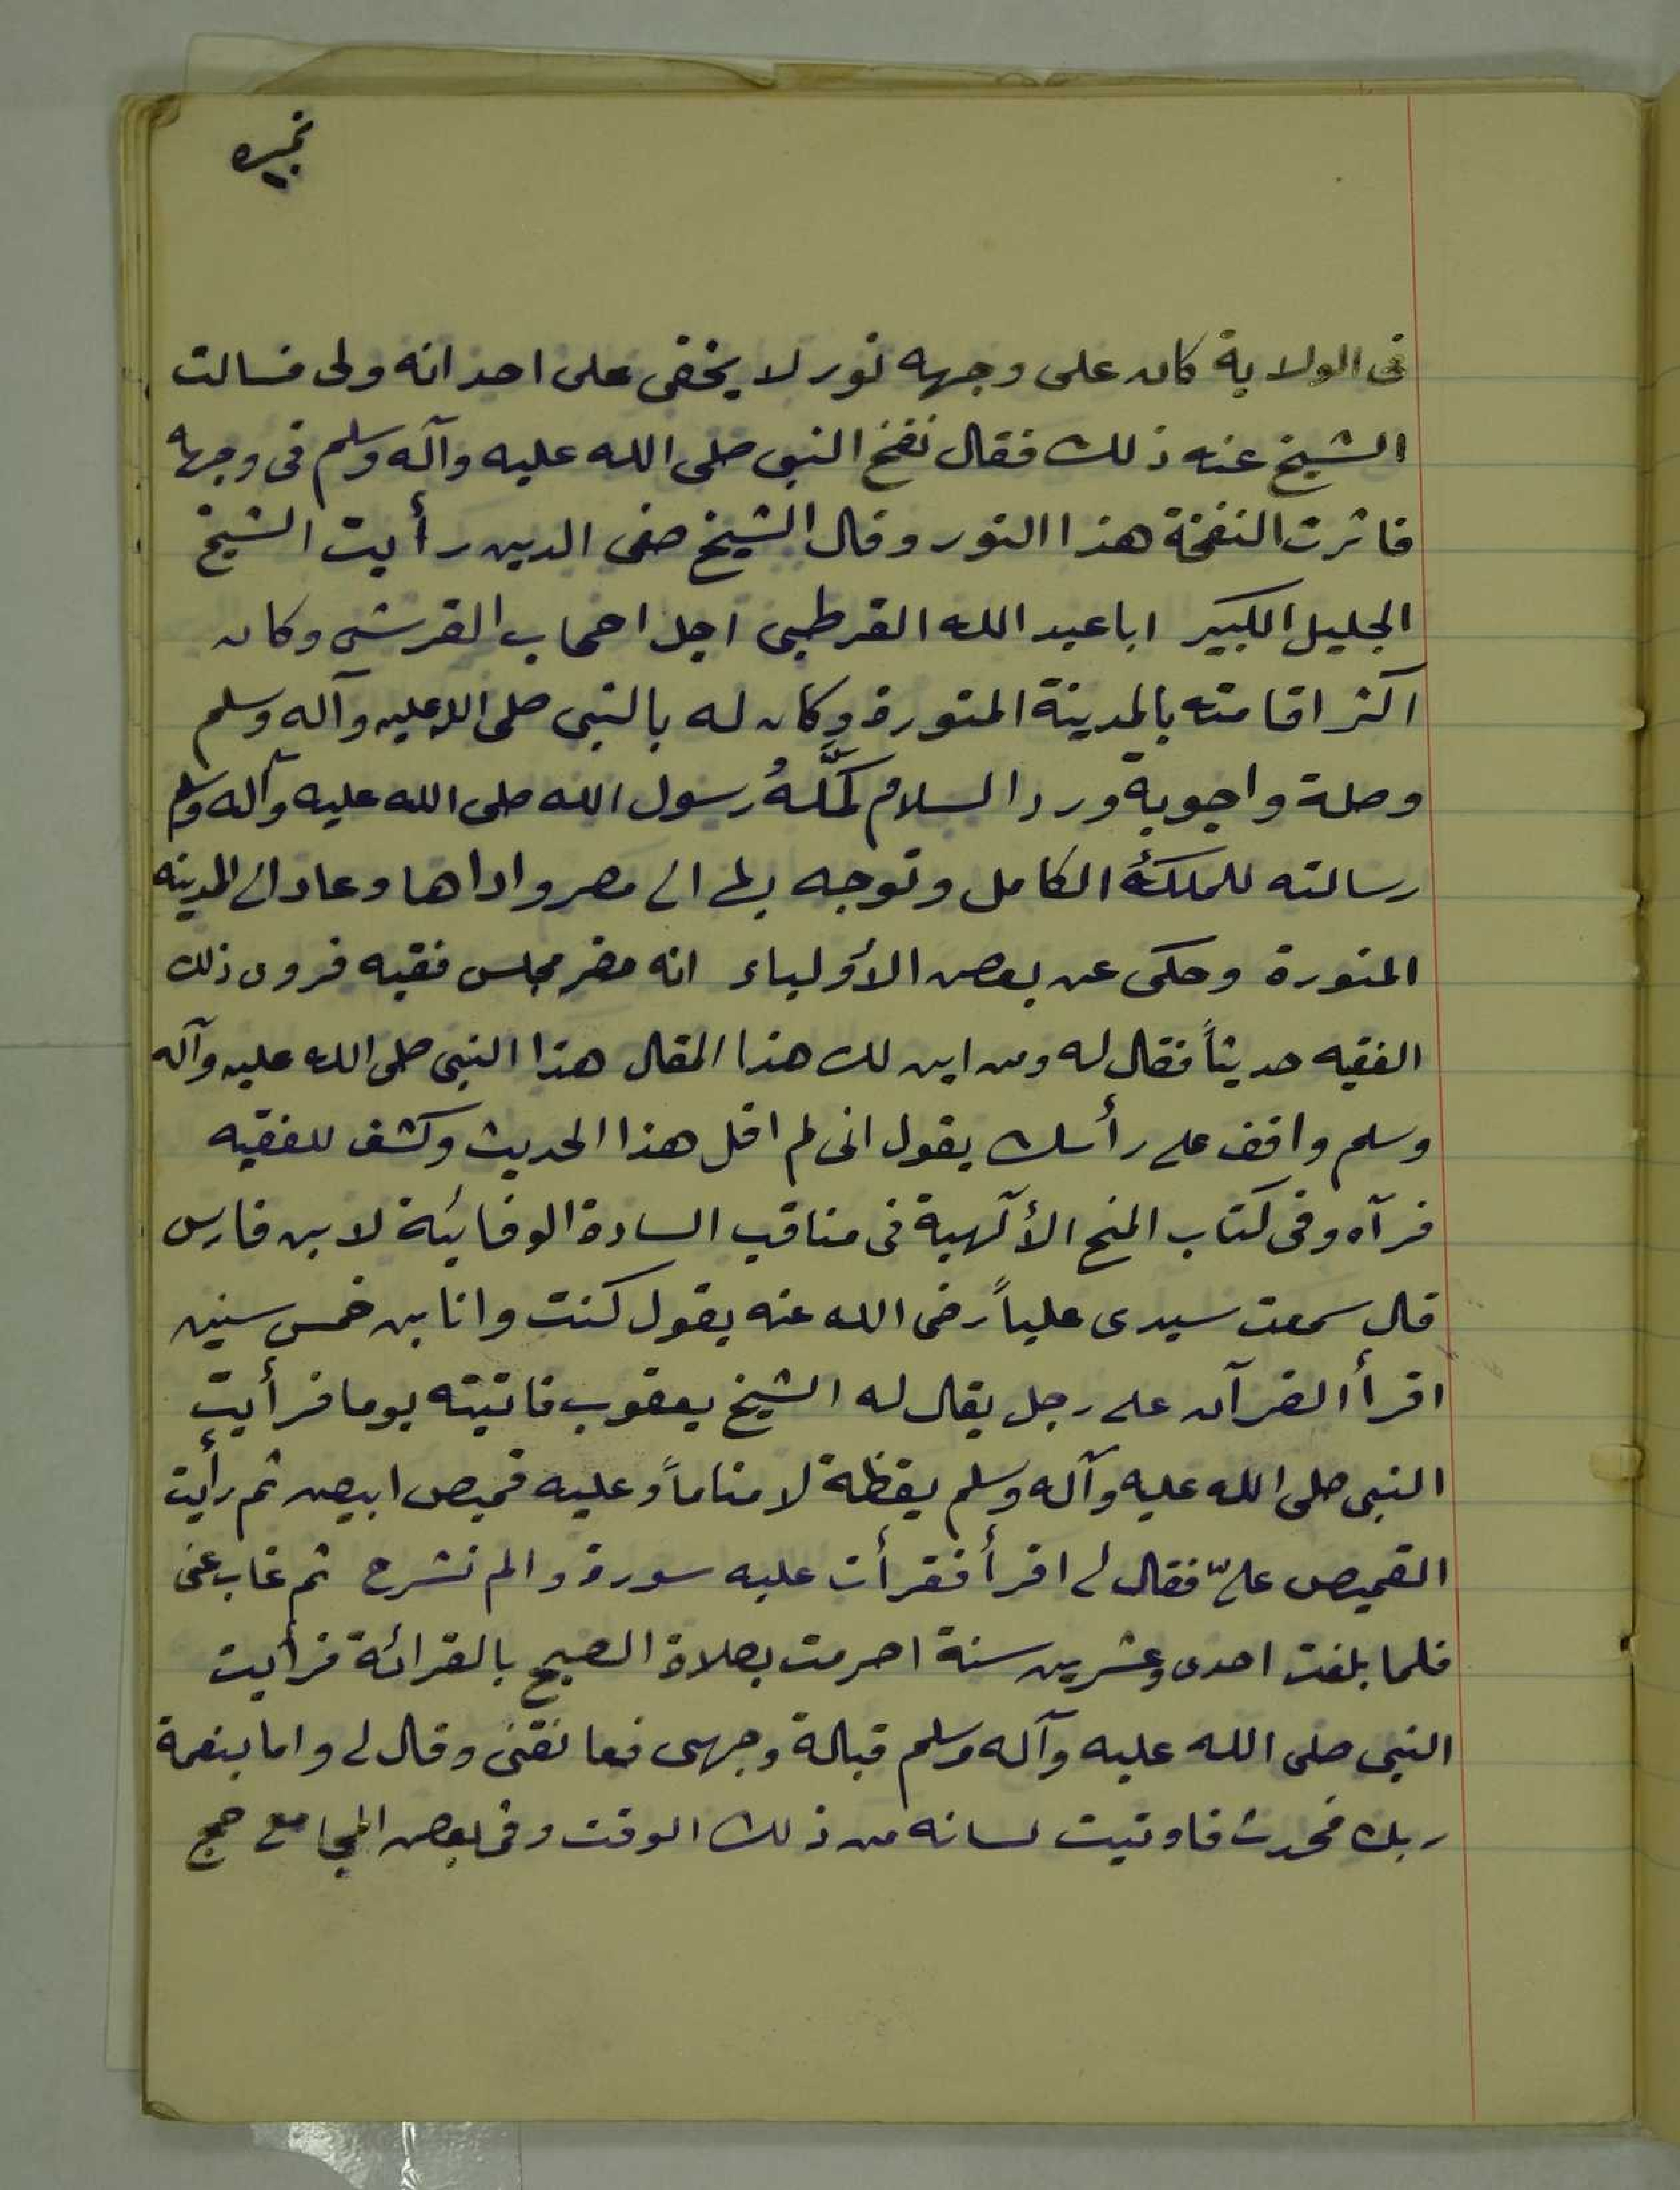 فى الولاية كان على وجهه نور لا يخفى على احد انه ولى فسالت
الشيخ عنه ذلك فقال نفخ النبى صلى الله عليه وآله وسلم فى وجهه
فاثرت النفخة هذا النور وقال الشيخ صفى الدين رأيت الشيخ
الجليل الكبير ابا عبد الله القرطبى اجل اصحاب القرشى وكان
اكثر اقامته بالمدينة المنورة وكان له بالنبى صلى الله عليه وآله وسلم
وصلة واجوبة ورد السلام حَمَّلَهُ رسول الله صلى الله عليه وآله وسلم
رسالته للملك الكامل وتوجه بها الى مصر واداها وعاد الى المدينه
المنورة وحكى عن بعض الأولياء انه حضر مجلس فقيه فروى ذلك
الفقيه حديثاً فقال له ومن اين لك هذا المقال هذا النبى صلى الله عليه وآله
وسلم واقف على رأسك يقول انى لم اقل هذا الحديث وكشف للفقيه
فرآه وفى كتاب المنح الألٓهية فى مناقب السادة الوفائية لابن فارس
قال سمعت سيدى علياً رضى الله عنه يقول كنت وانا بن خمس سنين
اقرأ القرآن على رجل يقال له الشيخ يعقوب فاتيته يوما فرأيت
النبى صلى الله عليه وآله وسلم يقظة لا مناماً وعليه قميص ابيض ثم رأيت
القميص علىّ فقال لى اقرأ فقرأت عليه سورة والم نشرح ثم غاب عنى
فلما بلغت احدى وعشرين سنة احرمت بصلاة الصبح بالقرائة فرأيت
النبى صلى الله عليه وآله وسلم قبالة وجهى فعانقنى وقال لى واما بنعمة
ربك فحدث فاوتيت لسانه من ذلك الوقت وفى بعض المجامع حج